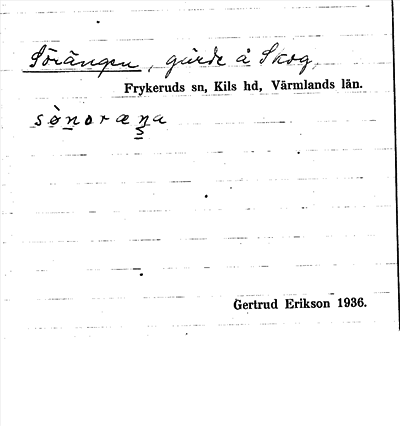 Sörängen, gärde å Skog,
Frykeruds sn, Kils hd, Värmlands län.
Gertrud Erikson 1936.